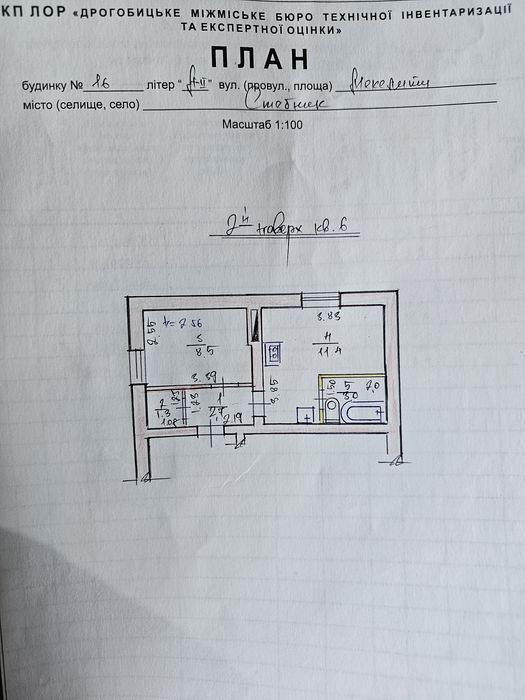 КП ЛОР «ДРОГОБИЦЬКЕ МІЖМІСЬКЕ БЮРО ТЕХНІЧНОЇ ІНВЕНТАРИЗАЦІЇ
ТА ЕКСПЕРТНОЇ ОЦІНКИ»
ПЛАН
будинку № 16 літер "А-ІІ" вул. (провул., площа)
місто (селище, село) Стебник
Масштаб 1:100
2й поверх кв. 6
h= 2.56
3.83
2.59
3
8.5
4
11.4
3.39
3.85
1.50
5
3.0
2.0
2
1.3
1.08
1.23
1.23
1
2.7
2.19